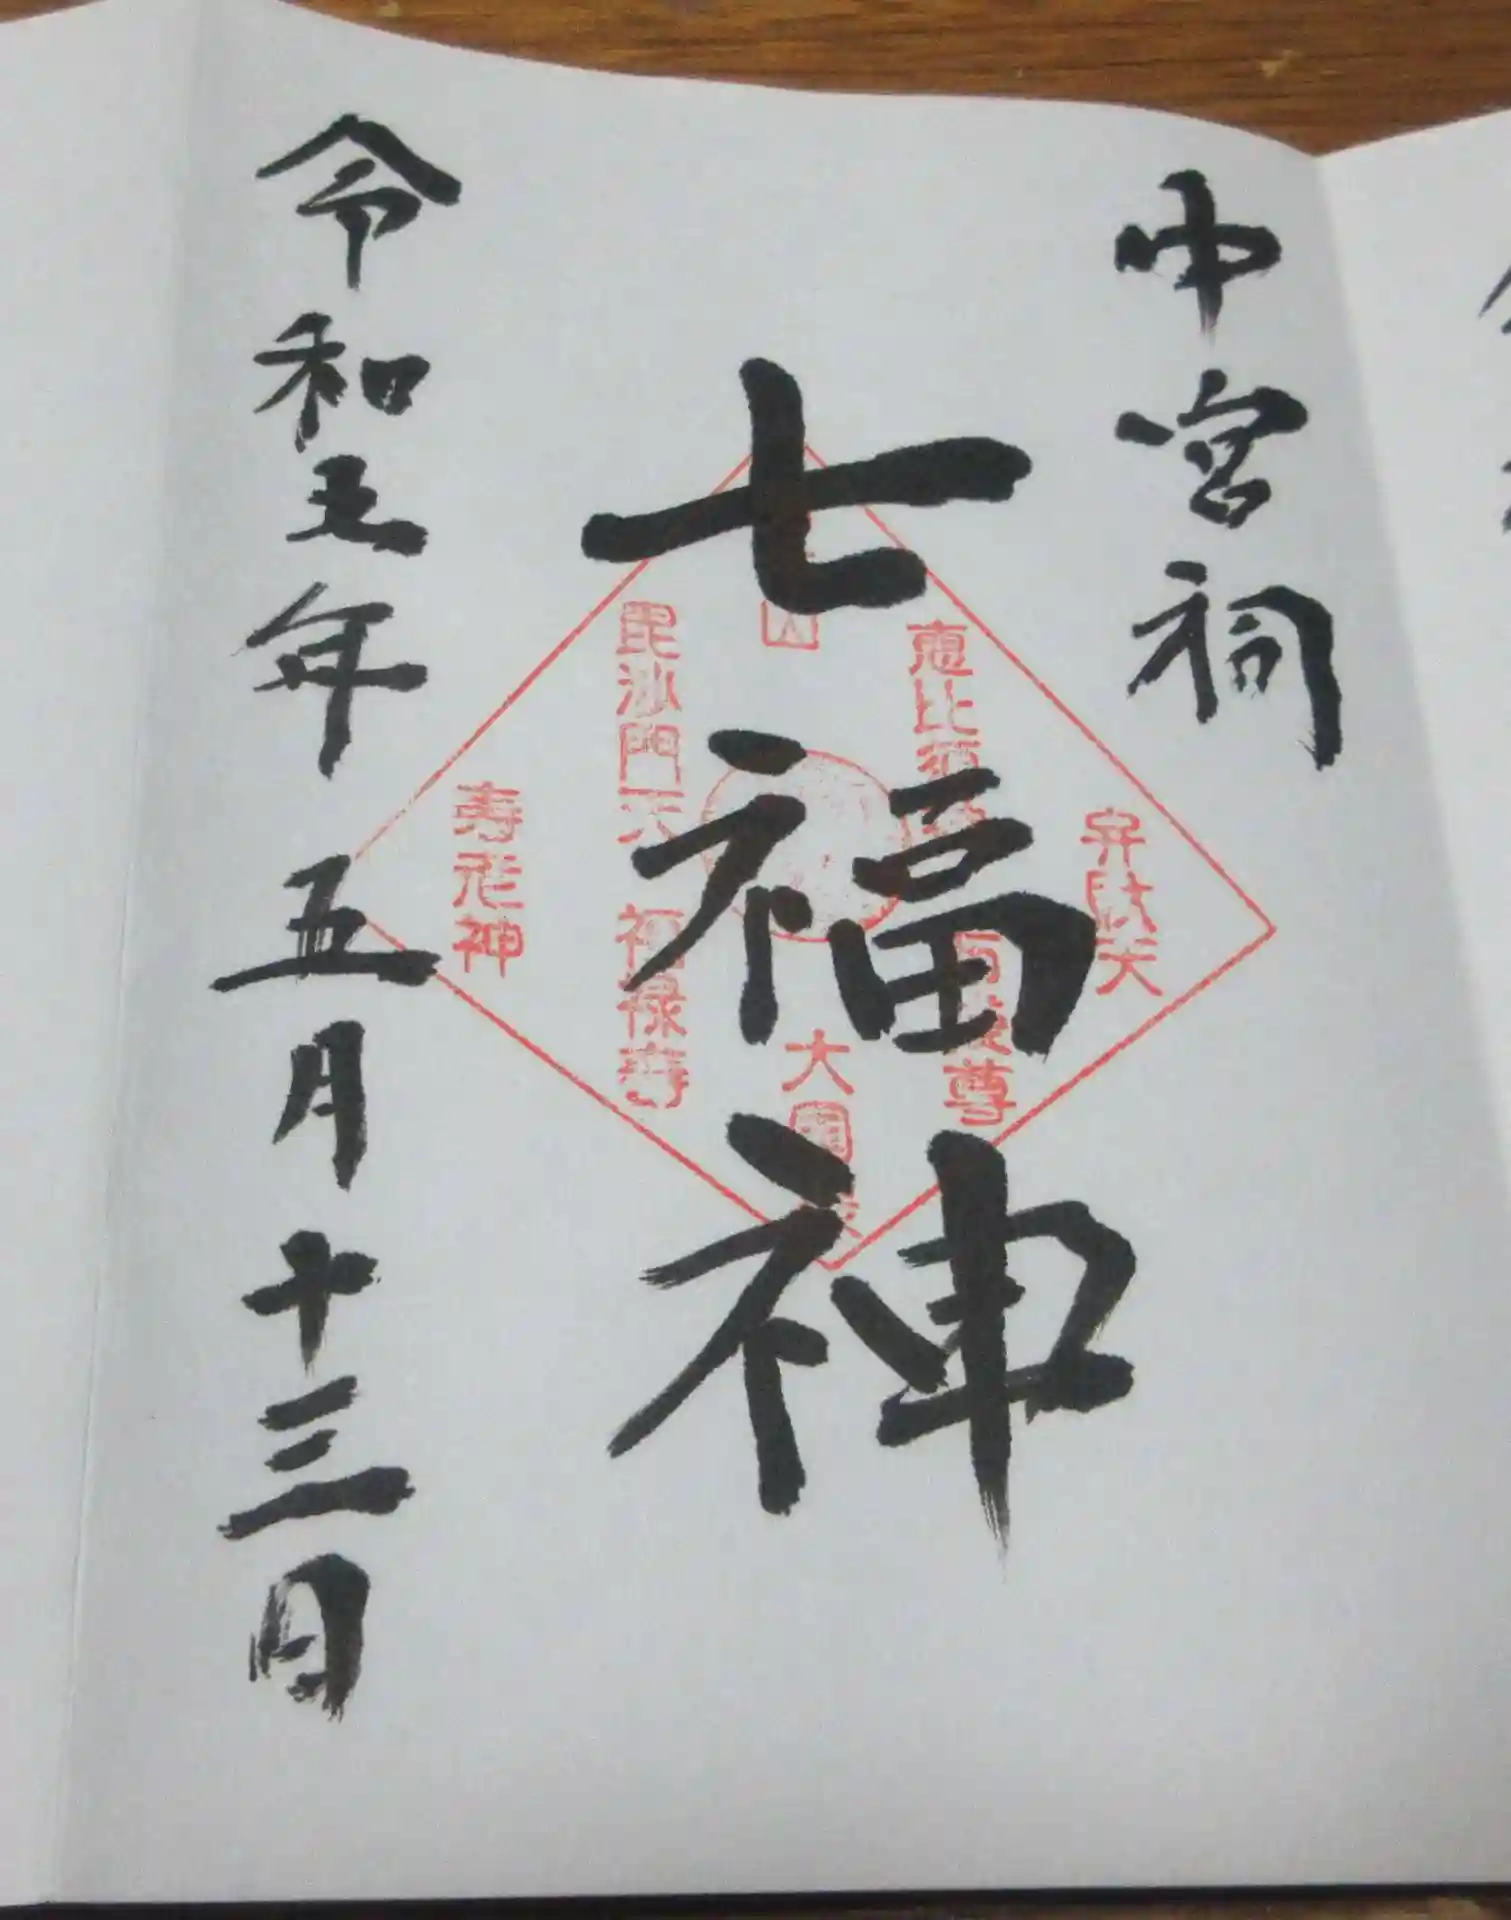 中宮祠
七福神
令和五年五月十三日
弁財天
恵比須
尊
大国
毘沙門天
福禄寿
寿老神